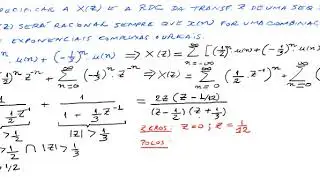 SPECIFICAR A X(Z) E A RDC DA TRANSF. Z DE UMA SE
(Z) SERÁ RACIONAL SEMPRE QUE X[N] FOR UMA COMBINA
EXPONENCIAIS COMPLEXAS OU REAIS.
)^n u(n) + (-1/3)^n . u(n) ⇒ X(z) = Σ [(1/2)^n . u(n) + (-1/3)^n
)^n z^-n + Σ (-1/3)^n . z^-n ⇒ X(z) = Σ (1/2 . z^-1)^n + Σ
n=0 ∞
1/2 z^-1 + 1 / (1 + 1/3 z^-1) = 2z(z - 1/12) / ((z - 1/2)(z + 1/3))
> 1/2 |z| > 1/3
ZEROS: z=0 ; z = 1/12
> 1/2 ∩ |z| > 1/3
POLOS:
1/2